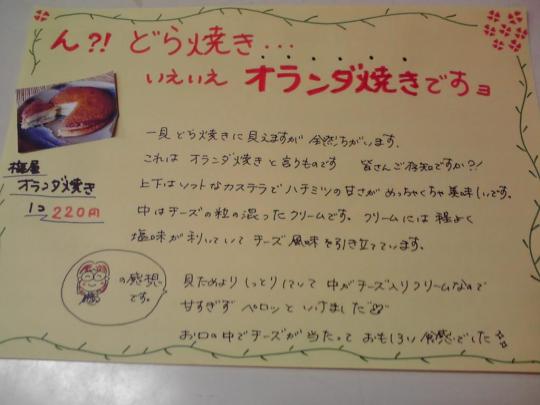 ん?! どら焼き...
いえいえ オランダ焼きですョ
梅屋
オランダ焼き
1コ 220円
一見どら焼きに見えますが 全然ちがいます.
これは オランダ焼きと言うものです 皆さんご存知ですか?!
上下はソフトなカステラでハチミツの甘さが めっちゃくちゃ美味しいです.
中はチーズの粒の混ったクリームです. クリームには程よく
塩味が利いていて チーズ風味を引き立てています.
の感想です。
見ためよりしっとりしていて 中がチーズ入りクリームなので
甘すぎず ペロッといけました
お口の中でチーズが当たって おもしろい食感でした